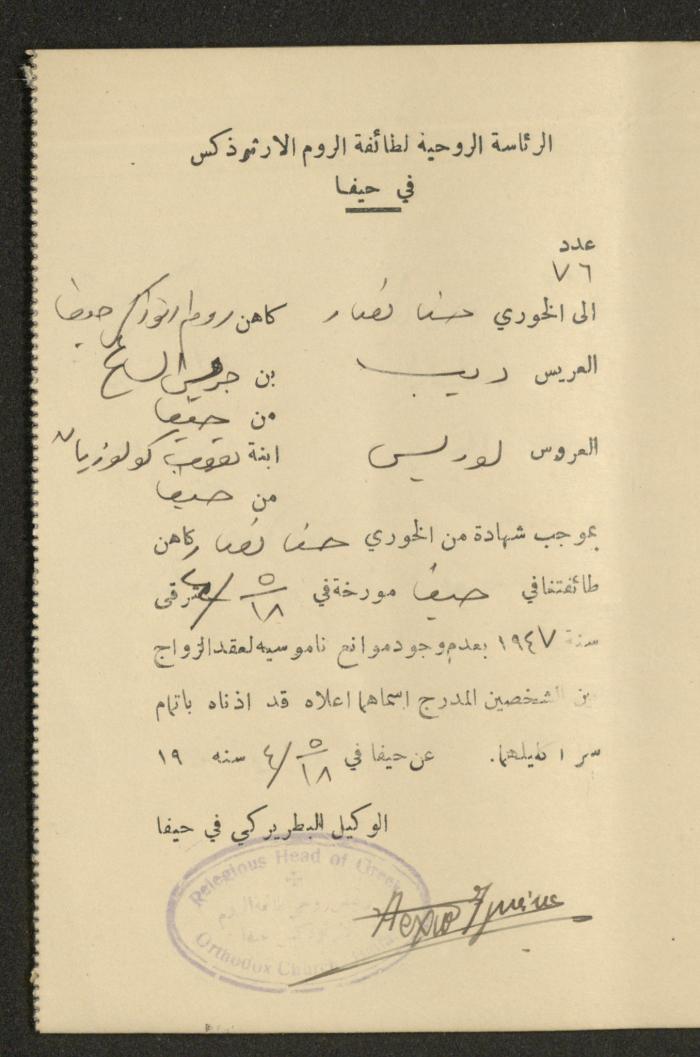 الرئاسة الروحية لطائفة الروم الارثوذكس
في حيفا
عدد
٧٦
الى الخوري حنا نصار كاهن روم حيفا
العريس ديب بن جريس
من حيفا
العروس لوريس ابنة يعقوب كولوزيان
من حيفا
بموجب شهادة من الخوري حنا نصار كاهن
طائفتنا في حيفا مورخة في ٥/١٨ شرقي
سنة ١٩٤٧ بعدم وجود موانع ناموسيه لعقد الزواج
بين الشخصين المدرج اسماهما اعلاه قد اذناه باتمام
سر اكليلهما. عن حيفا في ٥/١٨ سنه ١٩
الوكيل البطريركي في حيفا
Relegious Head of Greek
Orthodox Church